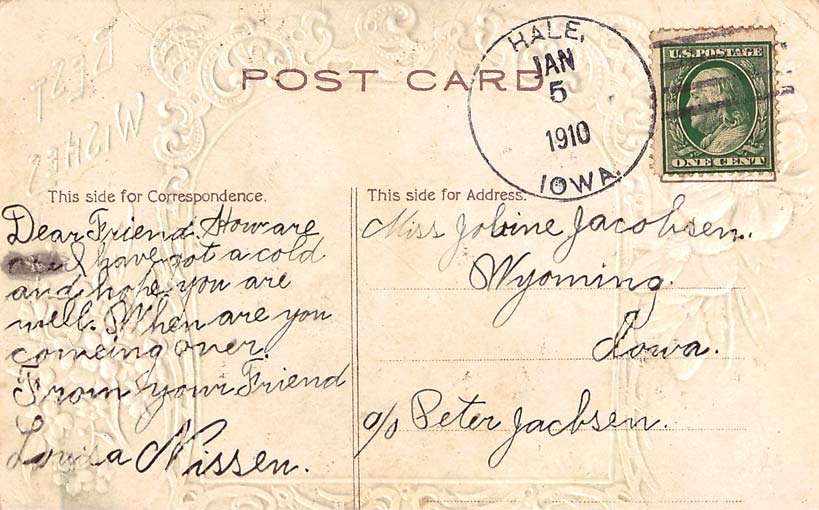 BEST
WISHES
POST CARD
HALE,
JAN
5
1910
IOWA.
U.S. POSTAGE
ONE CENT
This side for Correspondence.
Dear Friend. How are
I have got a cold
and hope you are
well. When are you
comeing over.
From your Friend
Louisa Nissen.
This side for Address.
Miss Jobine Jacobsen.
Wyoming.
Iowa.
c/o Peter Jacbsen.